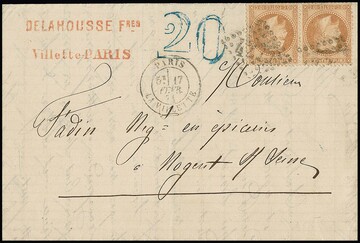 DELAHOUSSE Fres
Villette-PARIS
20
PARIS
5E 17
LA VILLETTE
Monsieur
Fadin Neg = en épiceries
à
Nogent s/ Seine